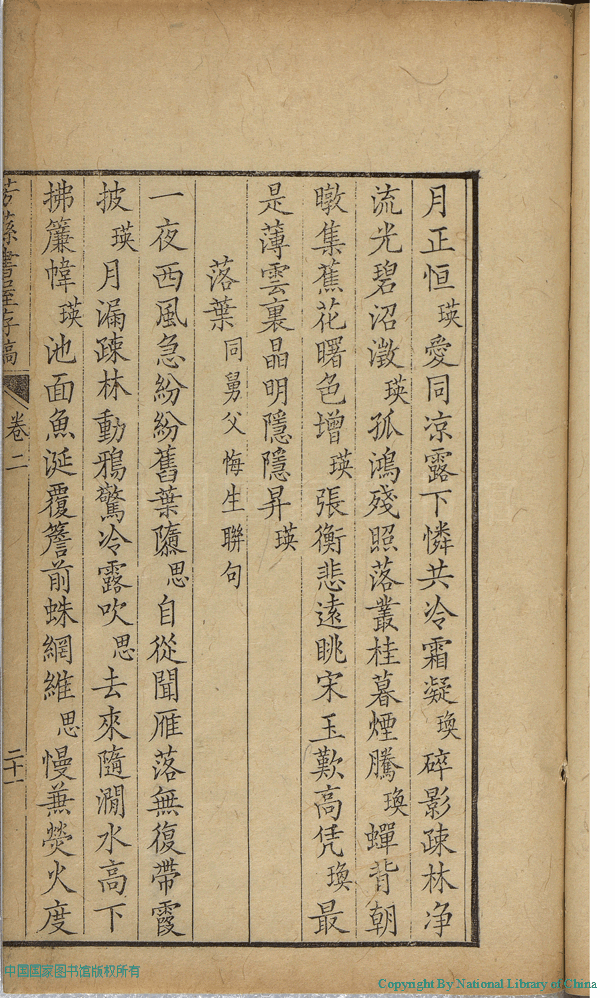 月正恒瑛愛同凉露下憐共冷霜凝瑍碎影疎林净
流光碧沼澂瑛孤鴻殘照落叢桂暮煙騰瑍蟬背朝
暾集蕉花曙色增瑛張衡悲遠眺宋玉歎高凭瑍最
是薄雲裏晶明隱隱昇瑛
落葉同舅父悔生聯句
一夜西風急紛紛舊葉隳思自從聞雁落無復帶霞
披瑛月漏疎林動鴉驚冷露吹思去來隨澗水高下
拂簾幃瑛池面魚涎覆簷前蛛網維思慢蕪熒火度
芳蓀書屋存稿 卷二 二十一
中国国家图书馆版权所有
Copyright By National Library of China